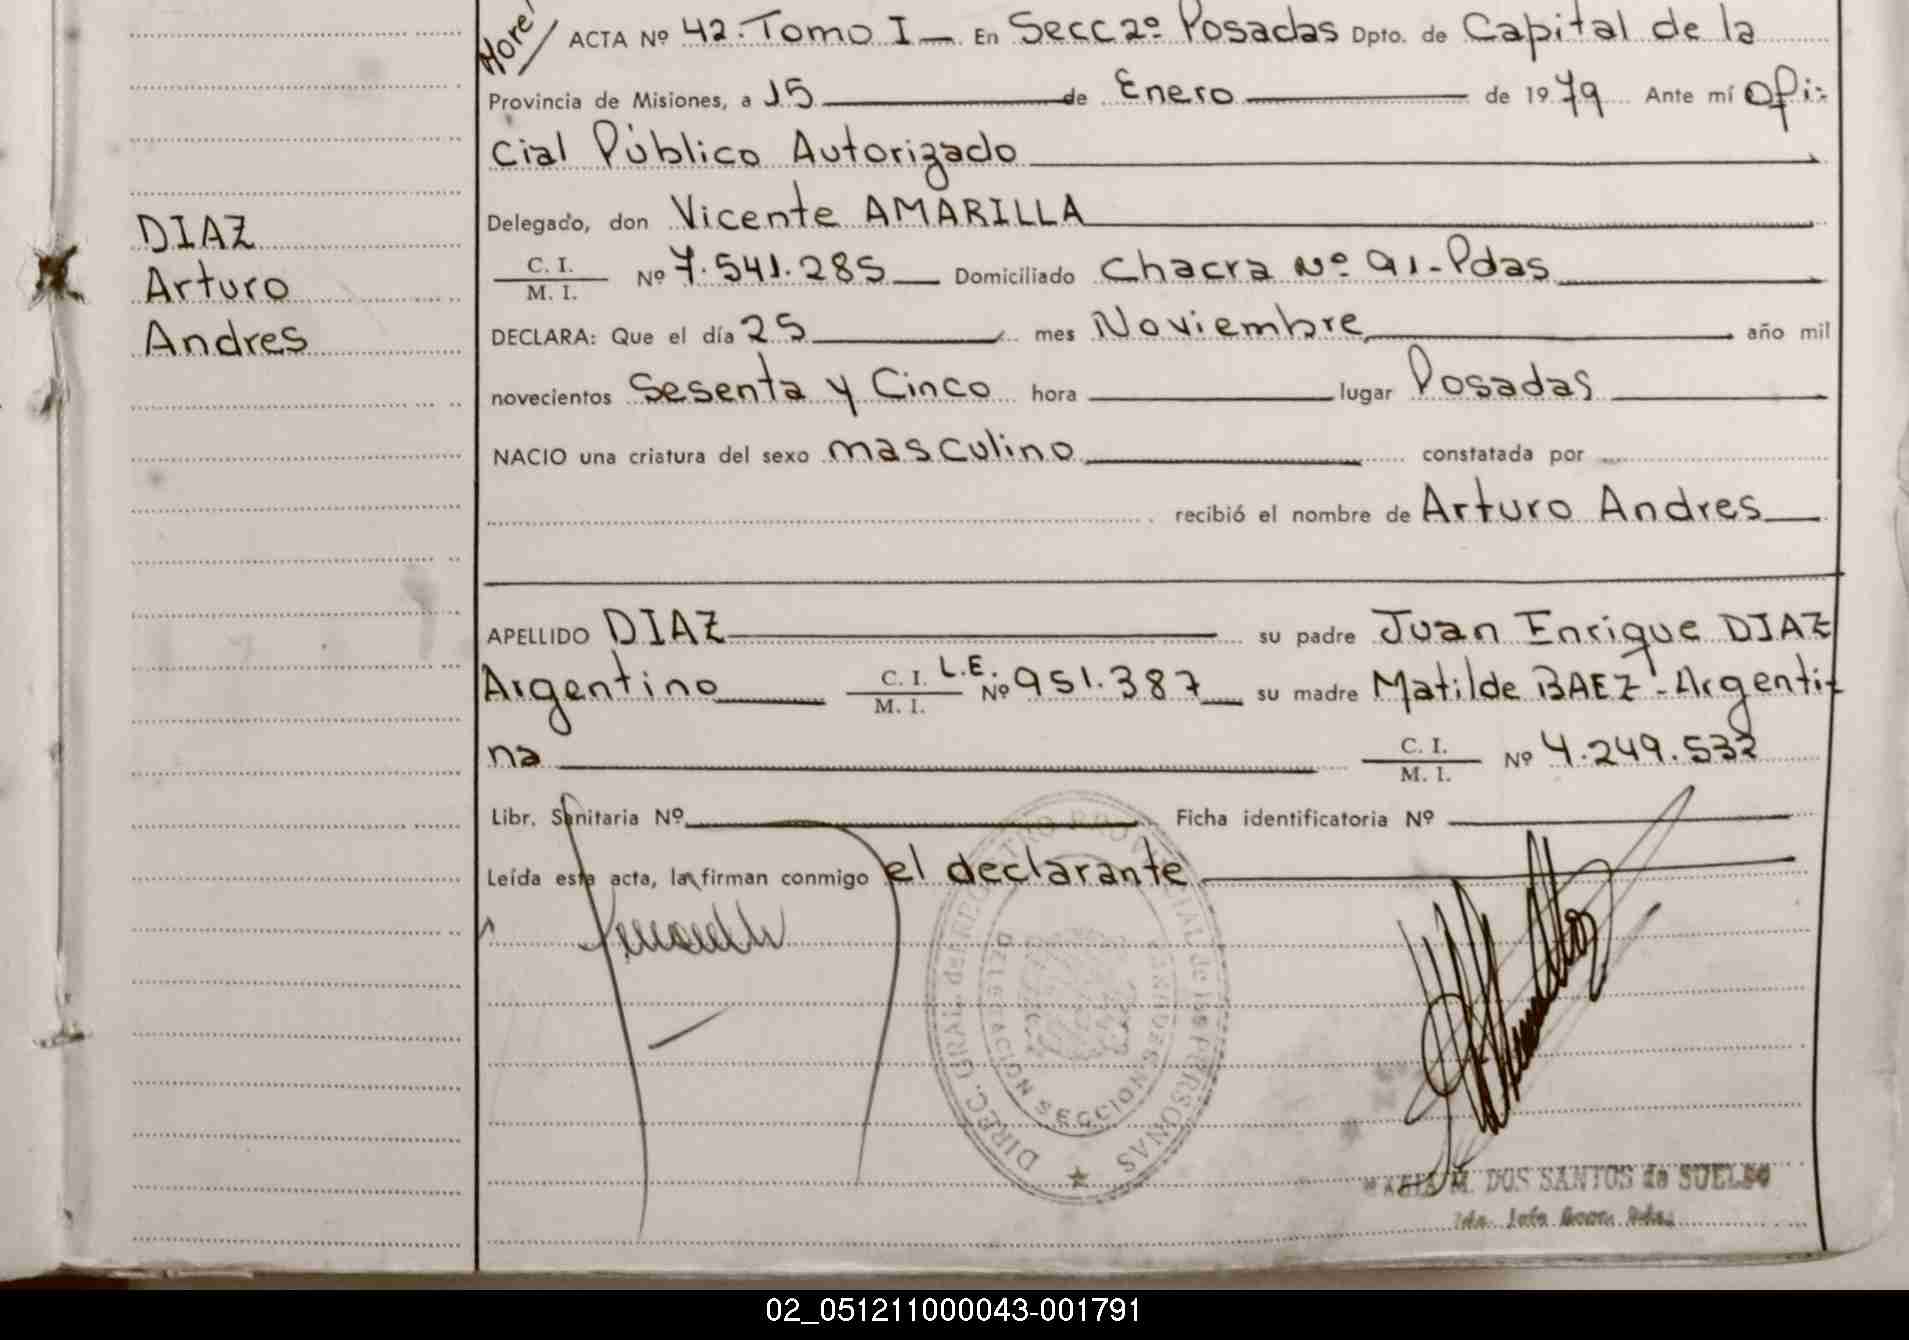 ACTA Nº 42. Tomo I — En Secc 2º Posadas Dpto. de Capital de la
Provincia de Misiones, a 15 de Enero de 1979 Ante mí Ofi-
cial Público Autorizado
Delegado, don Vicente AMARILLA
C. I.
M. I. Nº 7.541.285 Domiciliado Chacra Nº 91-Pdas
DECLARA: Que el día 25 mes Noviembre año mil
novecientos Sesenta y Cinco hora lugar Posadas
NACIO una criatura del sexo masculino constatada por
recibió el nombre de Arturo Andres
DIAZ
Arturo
Andres
APELLIDO DIAZ su padre Juan Enrique DIAZ
Argentino C. I. M. I. L.E. Nº 951.387 su madre Matilde BAEZ - Argenti-
na C. I. M. I. Nº 4.249.532
Libr. Sanitaria Nº Ficha identificatoria Nº
Leída esta acta, la firman conmigo el declarante
DIREC. GRAL. del REGISTRO PROVINCIAL de las PERSONAS
DELEGACION SECCION SEGUNDA
M. DOS SANTOS de SUELDO
02_051211000043-001791